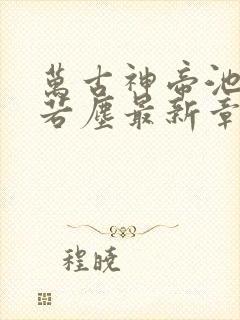 萬古神帝池
若塵最新章
程曉